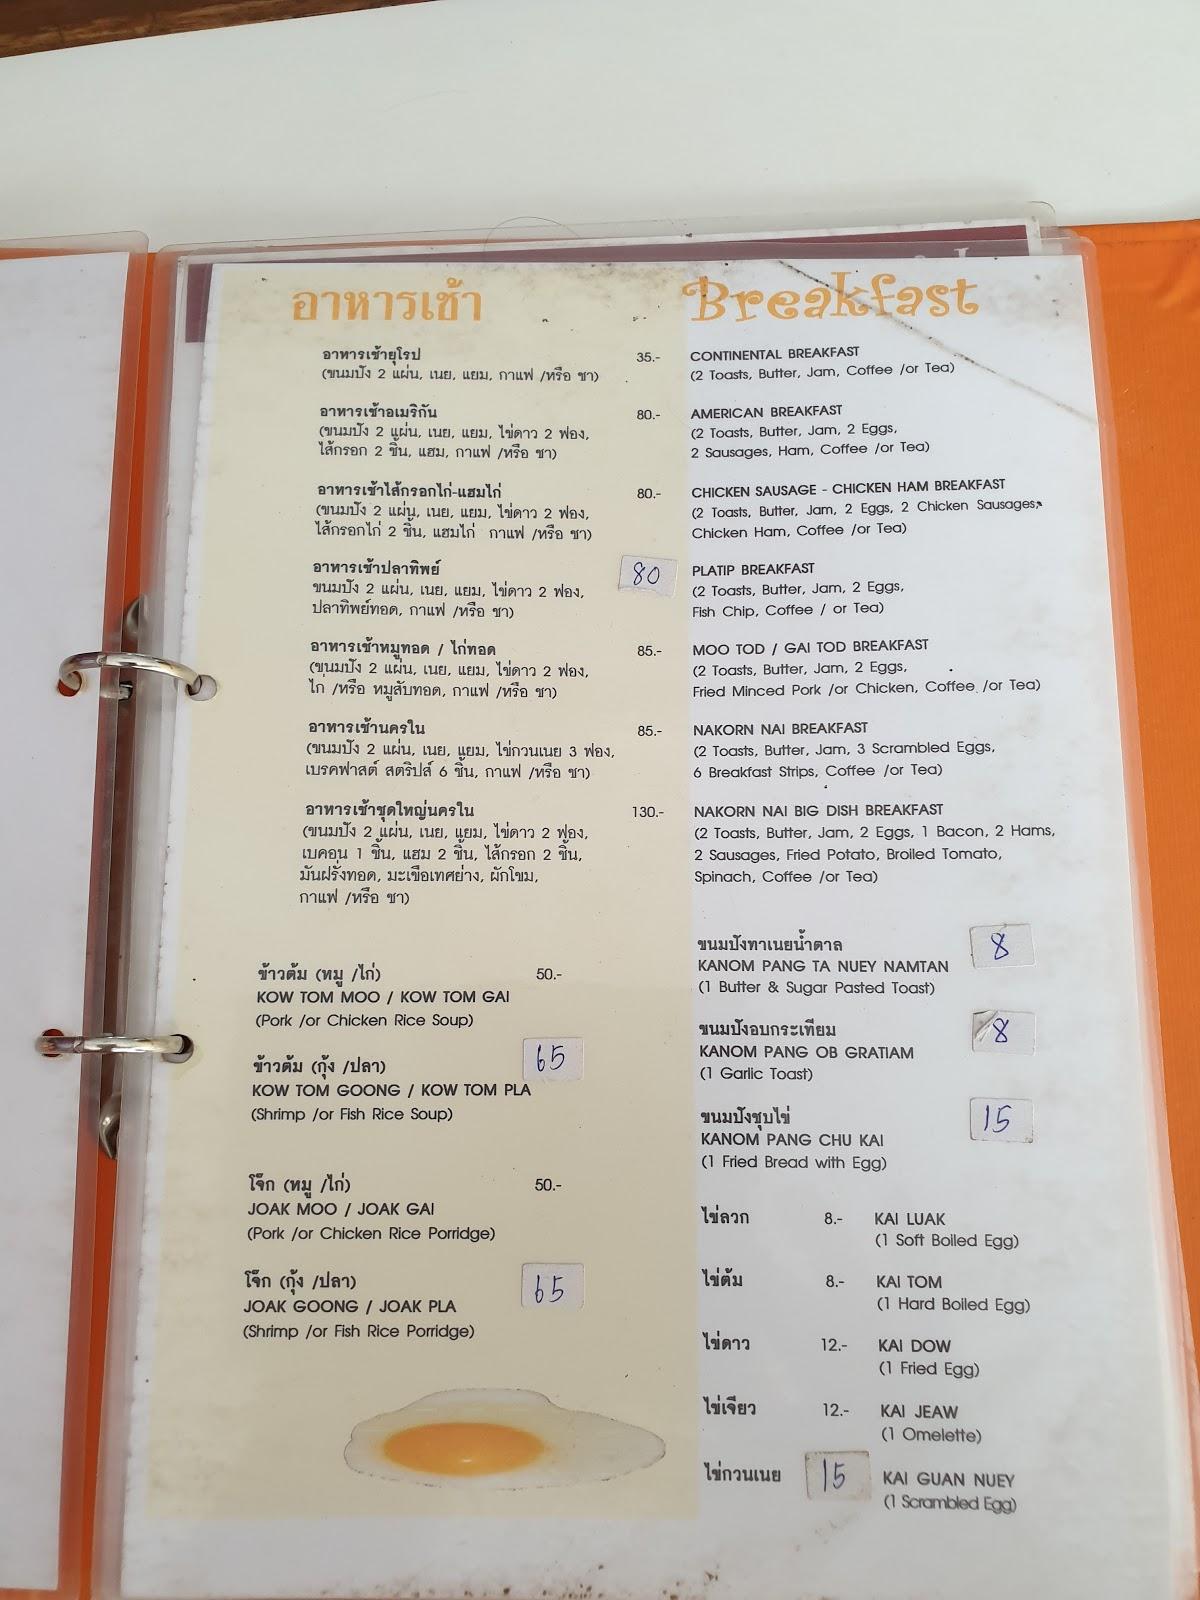 อาหารเช้า Breakfast
อาหารเช้ายุโรป 35.- CONTINENTAL BREAKFAST
(ขนมปัง 2 แผ่น, เนย, แยม, กาแฟ /หรือ ชา) (2 Toasts, Butter, Jam, Coffee /or Tea)
อาหารเช้าอเมริกัน 80.- AMERICAN BREAKFAST
(ขนมปัง 2 แผ่น, เนย, แยม, ไข่ดาว 2 ฟอง, (2 Toasts, Butter, Jam, 2 Eggs,
ไส้กรอก 2 ชิ้น, แฮม, กาแฟ /หรือ ชา) 2 Sausages, Ham, Coffee /or Tea)
อาหารเช้าไส้กรอกไก่-แฮมไก่ 80.- CHICKEN SAUSAGE - CHICKEN HAM BREAKFAST
(ขนมปัง 2 แผ่น, เนย, แยม, ไข่ดาว 2 ฟอง, (2 Toasts, Butter, Jam, 2 Eggs, 2 Chicken Sausages,
ไส้กรอกไก่ 2 ชิ้น, แฮมไก่ กาแฟ /หรือ ชา) Chicken Ham, Coffee /or Tea)
อาหารเช้าปลาทิพย์ 80 PLATIP BREAKFAST
ขนมปัง 2 แผ่น, เนย, แยม, ไข่ดาว 2 ฟอง, (2 Toasts, Butter, Jam, 2 Eggs,
ปลาทิพย์ทอด, กาแฟ /หรือ ชา) Fish Chip, Coffee / or Tea)
อาหารเช้าหมูทอด / ไก่ทอด 85.- MOO TOD / GAI TOD BREAKFAST
(ขนมปัง 2 แผ่น, เนย, แยม, ไข่ดาว 2 ฟอง, (2 Toasts, Butter, Jam, 2 Eggs,
ไก่ /หรือ หมูสับทอด, กาแฟ /หรือ ชา) Fried Minced Pork /or Chicken, Coffee /or Tea)
อาหารเช้านครใน 85.- NAKORN NAI BREAKFAST
(ขนมปัง 2 แผ่น, เนย, แยม, ไข่กวนเนย 3 ฟอง, (2 Toasts, Butter, Jam, 3 Scrambled Eggs,
เบรคฟาสต์ สตริปส์ 6 ชิ้น, กาแฟ /หรือ ชา) 6 Breakfast Strips, Coffee /or Tea)
อาหารเช้าชุดใหญ่นครใน 130.- NAKORN NAI BIG DISH BREAKFAST
(ขนมปัง 2 แผ่น, เนย, แยม, ไข่ดาว 2 ฟอง, (2 Toasts, Butter, Jam, 2 Eggs, 1 Bacon, 2 Hams,
เบคอน 1 ชิ้น, แฮม 2 ชิ้น, ไส้กรอก 2 ชิ้น, 2 Sausages, Fried Potato, Broiled Tomato,
มันฝรั่งทอด, มะเขือเทศย่าง, ผักโขม, Spinach, Coffee /or Tea)
กาแฟ /หรือ ชา)
ข้าวต้ม (หมู /ไก่) 50.-
KOW TOM MOO / KOW TOM GAI
(Pork /or Chicken Rice Soup)
ข้าวต้ม (กุ้ง /ปลา) 65
KOW TOM GOONG / KOW TOM PLA
(Shrimp /or Fish Rice Soup)
โจ๊ก (หมู /ไก่) 50.-
JOAK MOO / JOAK GAI
(Pork /or Chicken Rice Porridge)
โจ๊ก (กุ้ง /ปลา) 65
JOAK GOONG / JOAK PLA
(Shrimp /or Fish Rice Porridge)
ขนมปังทาเนยน้ำตาล 8
KANOM PANG TA NUEY NAMTAN
(1 Butter & Sugar Pasted Toast)
ขนมปังอบกระเทียม 8
KANOM PANG OB GRATIAM
(1 Garlic Toast)
ขนมปังชุบไข่ 15
KANOM PANG CHU KAI
(1 Fried Bread with Egg)
ไข่ลวก 8.- KAI LUAK
(1 Soft Boiled Egg)
ไข่ต้ม 8.- KAI TOM
(1 Hard Boiled Egg)
ไข่ดาว 12.- KAI DOW
(1 Fried Egg)
ไข่เจียว 12.- KAI JEAW
(1 Omelette)
ไข่กวนเนย 15 KAI GUAN NUEY
(1 Scrambled Egg)